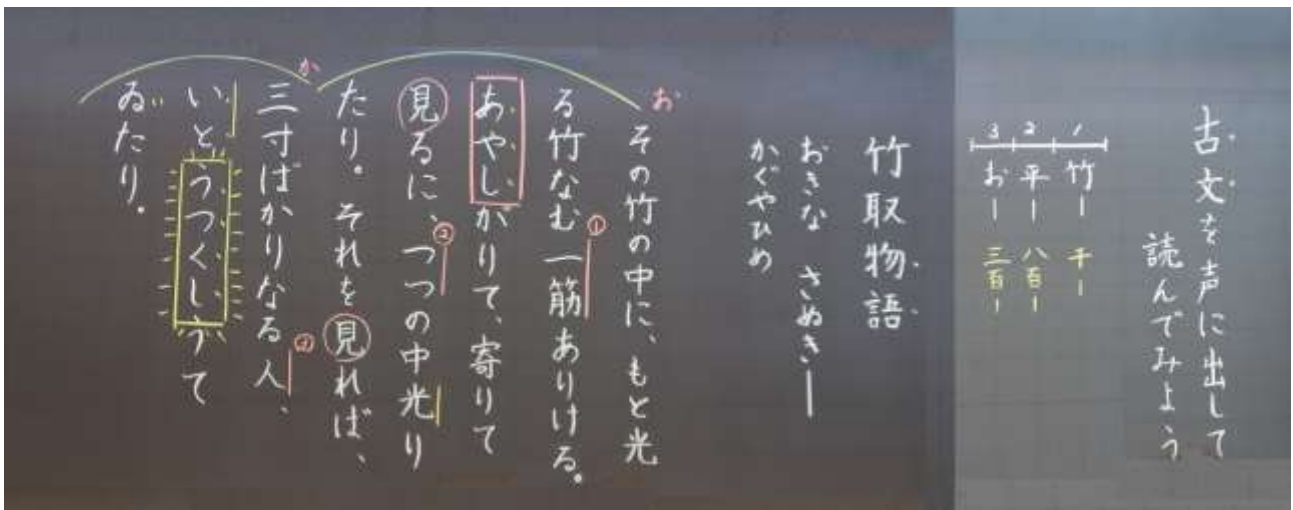 古文を声に出して
読んでみよう
1 竹― 千―
2 平― 八百―
3 お― 三百―
竹取物語
おきな さぬき―
かぐやひめ
お
その竹の中に、もと光
る竹なむ一筋ありける。
①
あやしがりて、寄りて
見るに、つつの中光り
②
たり。それを見れば、
か
三寸ばかりなる人、
③
いとうつくしうて
ゐたり。